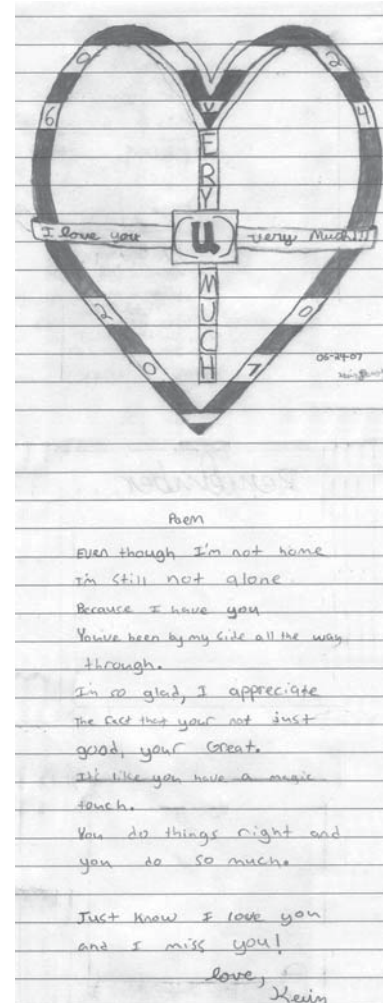 0 2
6 4
V
E
R
Y
I love you U very Much!!!
M
U
C
H
2 0
0 7
06-24-07
Remember
Poem
Even though I'm not home
I'm still not alone
Because I have you
You've been by my side all the way
through.
I'm so glad, I appreciate
The fact that your not just
good, your Great.
It's like you have a magic
touch.
You do things right and
you do so much.
Just know I love you
and I miss you!
love,
Kevin